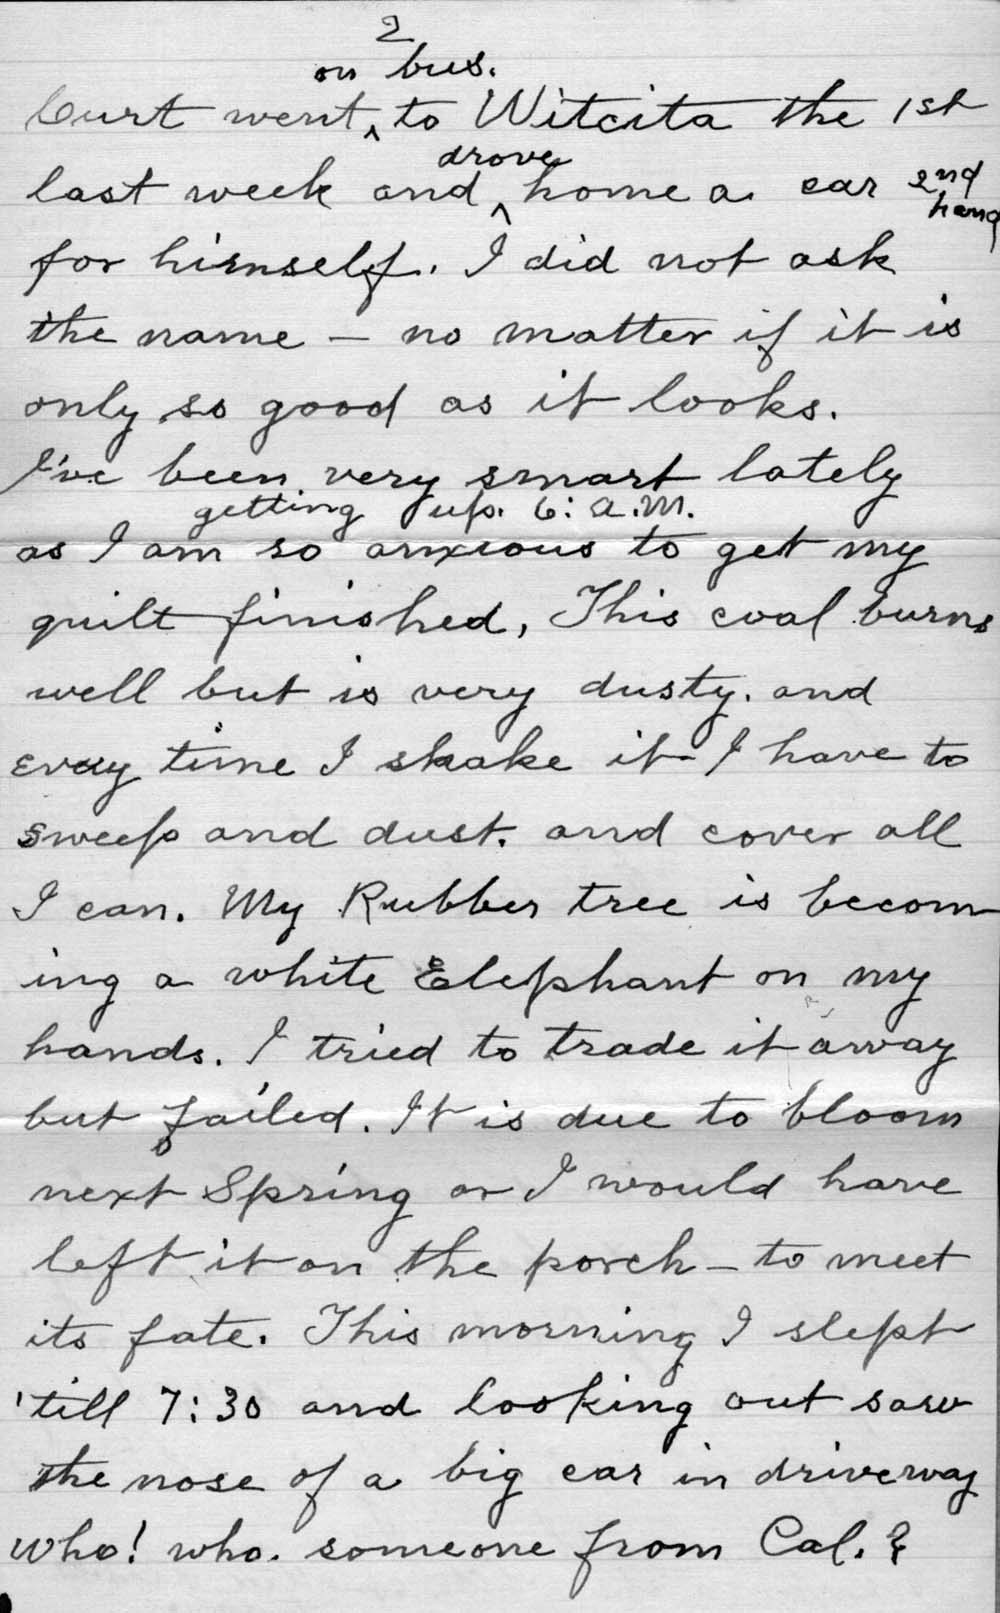 2
on bus.
Curt went ^ to Witcita the 1st
drove
last week and ^ home a car 2nd
hand
for himself. I did not ask
the name – no matter if it is
only so good as it looks.
I've been very smart lately
getting up. 6: a.m.
as I am so anxious to get my
quilt finished, This coal burns
well but is very dusty. and
every time I shake it I have to
sweep and dust. and cover all
I can. My Rubber tree is becom
ing a white Elephant on my
hands. I tried to trade it away
but failed. It is due to bloom
next Spring or I would have
left it on the porch – to meet
its fate. This morning I slept
'till 7:30 and looking out saw
the nose of a big car in driveway
Who! who. someone from Cal. &